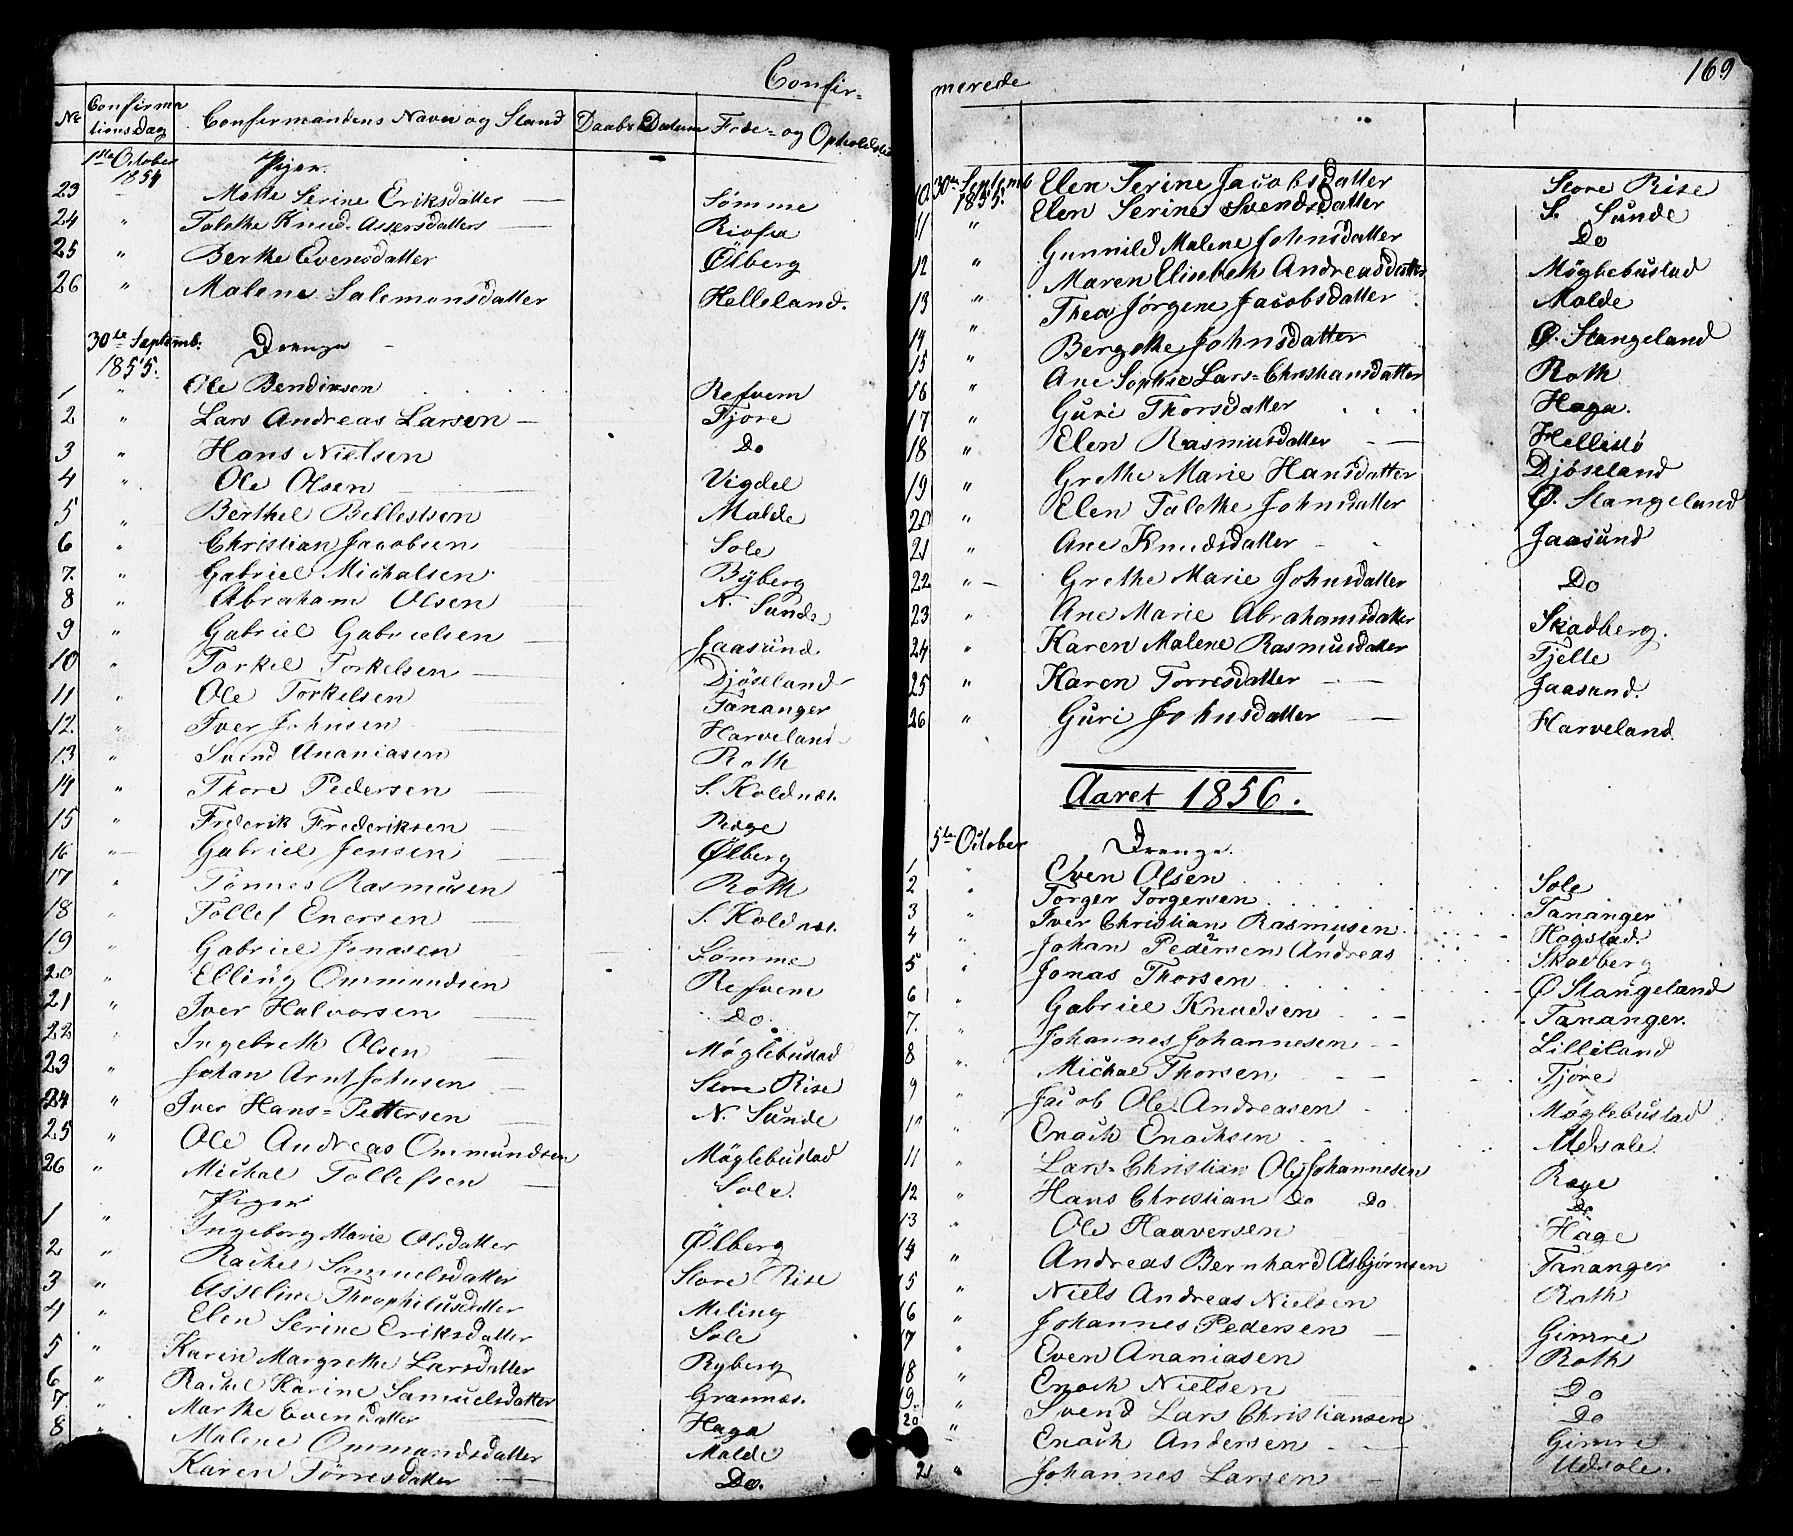 Confir-
No Confirmationsdag Confirmandens Navn og Stand Daabs Datum Føde- og Opholdsted
1ste October 1854 Piger.
23 " Mette Serine Eriksdatter Sømme
24 " Talethe Knud-Assersdatters
25 " Berthe Evensdatter Ølberg
26 " Malene Salemonsdatter Helleland.
30te Septemb. 1855. Drenge
1 " Ole Bendiksen Refvem
2 " Lars Andreas Larsen Tjore
3 " Hans Nielsen Do
4 " Ole Olsen Vigdel
5 " Berthel Bellestsen Malde
6 " Christian Jacobsen Sole
7. " Gabriel Michalsen Byberg
8 " Abraham Olsen N. Sunde
9 " Gabriel Gabrielsen Jaasund
10 " Torkel Torkelsen Djøseland
11 " Ole Torkelsen Tananger
12. " Iver Johnsen Harveland
13 " Svend Ananiasen Roth
14 " Thore Pedersen S. Koldnæs.
15 " Frederik Frederiksen Rege
16 " Gabriel Jensen Ølberg
17 " Tønnes Rasmusen Roth
18 " Tollef Enersen S. Koldnæs.
19 " Gabriel Jonasen Sømme
20 " Elling Ommundsen Refvem
21 " Iver Halvorsen Do
22 " Ingebreth Olsen Møglebustad
23 " Johan Arnt Johnsen Store Rise
24 " Iver Hans-Pettersen N. Sunde
25 " Ole Andreas Ommundsen Møglebustad
26 " Michal Tollefsen Sole.
Piger
1 " Ingeborg Marie Olsdatter Ølberg
2 " Rachel Samuelsdatter Store Rise
3 " Asseline Theophilusdatter Meling
4 " Elen Serine Eriksdatter Sole
5 " Karen Margrethe Larsdatter Byberg
6 " Rachel Karine Samuelsdatter Grannæs.
7 " Marthe Evensdatter Haga
8 " Malene Ommundsdatter Malde
Karen Tørresdatter Do.
merede 169
10 30te Septemb 1855. Elen Serine Jacobsdatter Store Rise
11 " Elen Serine Svendsdatter S. Sunde
12 " Gunnild Malene Johnsdatter Do
13 " Maren Elisabeth Andreasdatter Møglebustad
" Thea Jørgene Jacobsdatter Malde
14 " Bergethe Johnsdatter Ø. Stangeland
15 " Ane Sophie Lars-Christiansdatter Roth
16 " Guri Thorsdatter Haga.
17 " Elen Rasmusdatter Hellestø
18 " Grethe Marie Hansdatter Djøseland
19 " Elen Talethe Johnsdatter Ø. Stangeland
20 " Ane Knudsdatter Jaasund
21 " Grethe Marie Johnsdatter Do
22 " Ane Marie Abrahamsdatter Skadberg.
23 " Karen Malene Rasmusdatter Tjelte
24 " Karen Torresdatter Jaasund.
25 " Guri Johnsdatter Harveland
26 "
Aaret 1856.
5te October Drenge.
1 " Even Olsen Sole
2 " Torger Torgersen Tananger
3 " Iver Christian Rasmusen Hogstad.
4 " Johan Pedersen Andreas Skadberg
5 " Jonas Thorsen Ø Stangeland
6 " Gabriel Knudsen Tananger.
7. " Johannes Johannesen Lilleland
8 " Michael Thorsen Tjøre
9 " Jacob Ole Andreasen Møglebustad
10 " Enoch Enochsen Udsole.
11 " Lars-Christian Ole Johannesen Rege
12 " Hans Christian Do Do Do
13 " Ole Haaversen Hage
14 " Andreas Bernhard Asbjørnsen Tananger
15 " Niels Andreas Nielsen Roth
16 " Johannes Pedersen Gimre
17 " Even Ananiasen Roth
18 " Enoch Nielsen Do
19. " Svend Lars Christiansen Do
20 " Enoch Andersen Gimre
21 " Johannes Larsen Udsole.